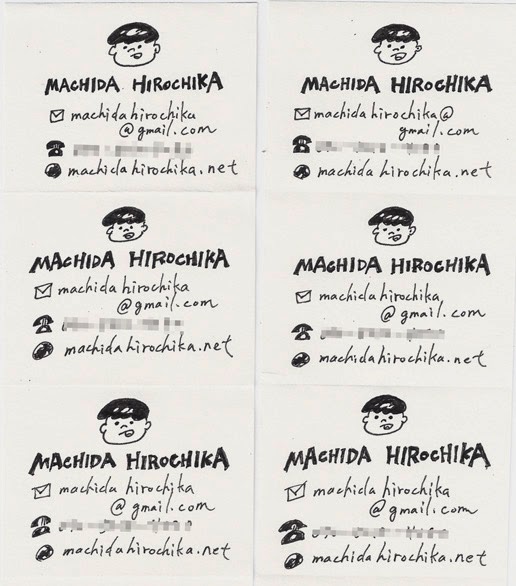 MACHIDA HIROCHIKA
machidahirochika
@gmail.com
machidahirochika.net
MACHIDA HIROCHIKA
machidahirochika@
gmail.com
machidahirochika.net
MACHIDA HIROCHIKA
machidahirochika
@gmail.com
machidahirochika.net
MACHIDA HIROCHIKA
machidahirochika
@gmail.com
machidahirochika.net
MACHIDA HIROCHIKA
machidahirochika
@gmail.com
machidahirochika.net
MACHIDA HIROCHIKA
machidahirochika
@gmail.com
machidahirochika.net